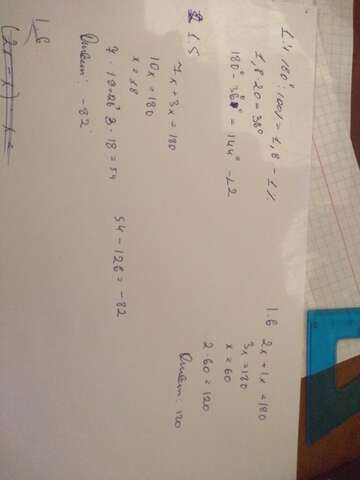 1.4 180°:100% = 1,8 - 1%
1,8 · 20 = 38°
180° - 38° = 144° - L2
1.5
7x + 3x = 180
10x = 180
x = 18
7 · 18 = 126 3 · 18 = 54
54 - 126 = -82
Ответ: -82
1.6
1.6 2x + 1x = 180
3x = 180
x = 60
2 · 60 = 120
Ответ: 120